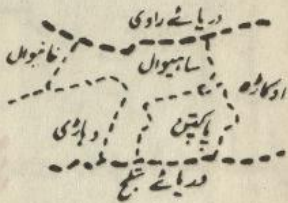 دریائے راوی
خانیوال
ساہیوال
اوکاڑہ
وہاڑی
پاکپتن
دریائے ستلج